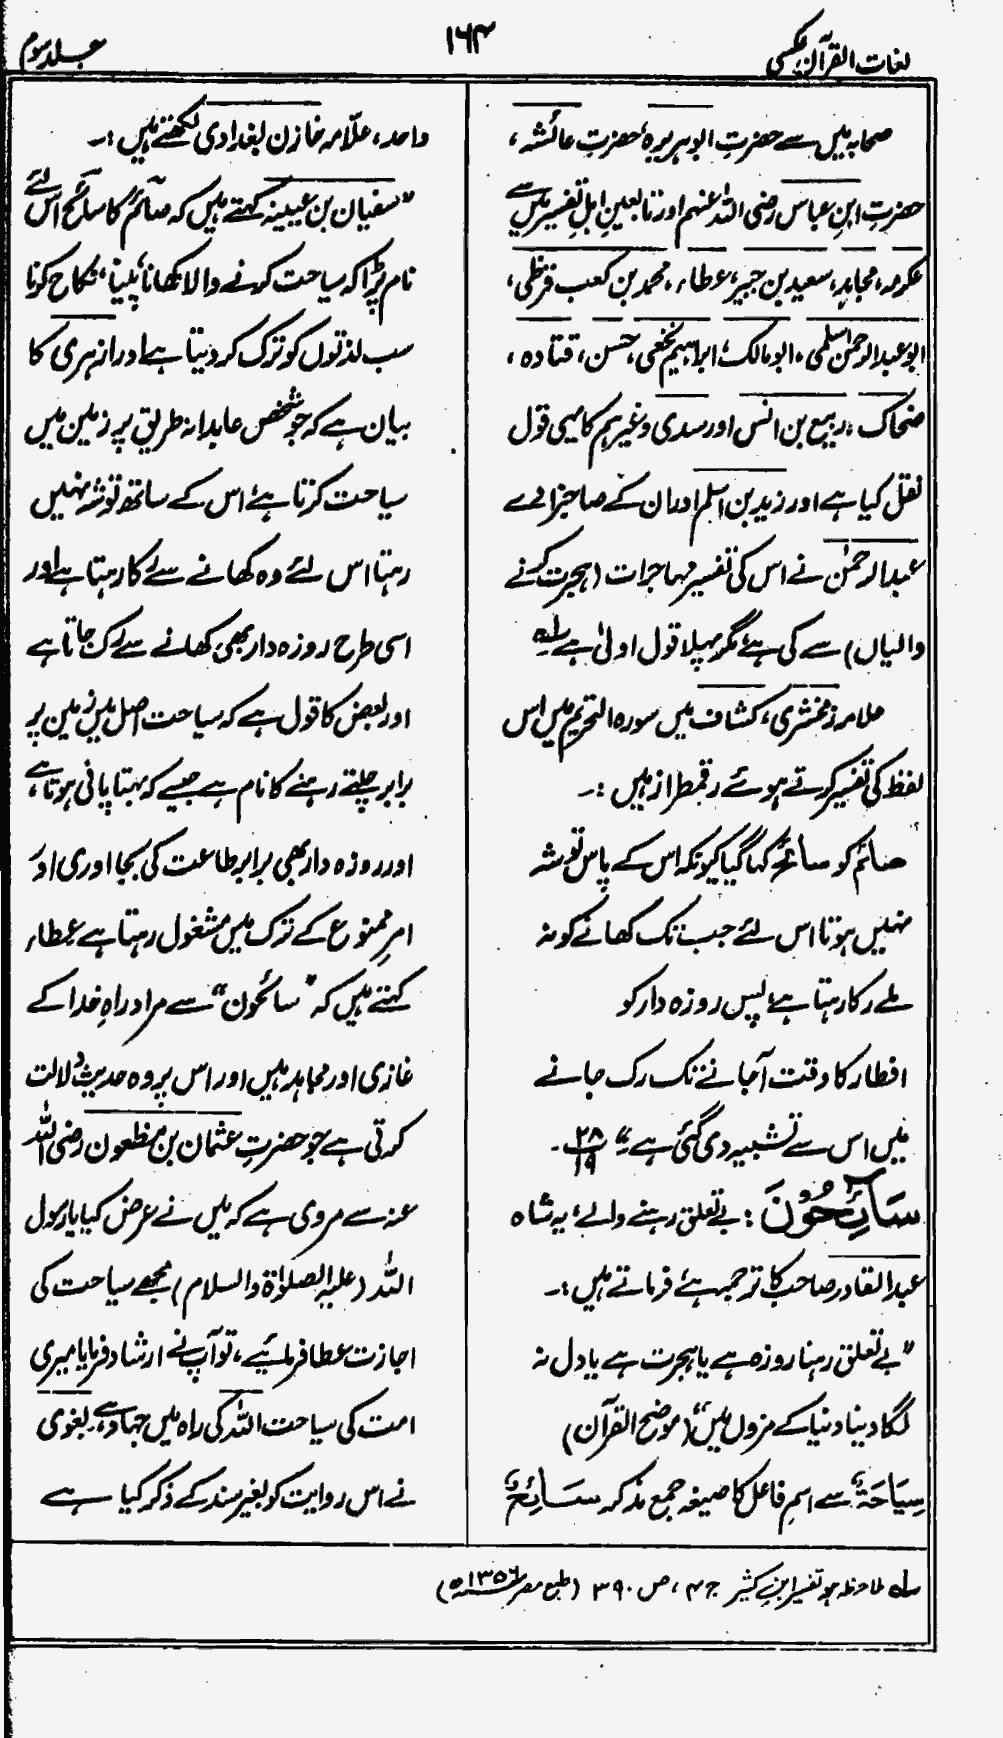 لغات القرآن عکسی
۱۶۴
جلد سوم
صحابہ میں سے حضرتِ ابوہریرہ، حضرتِ عائشہ،
حضرتِ ابنِ عباس رضی اللہ عنہم اور تابعینِ اہلِ تفسیر میں سے
عکرمہ، مجاہد، سعید بن جبیر، عطاء، محمد بن کعب قرظی،
ابو عبدالرحمٰن سلمی، ابو مالک، ابراہیم نخعی، حسن، قتادہ،
ضحاک، ربیع بن انس اور سدی وغیرہم کا یہی قول
نقل کیا ہے اور زید بن اسلم اور ان کے صاحبزادے
عبدالرحمٰن نے اس کی تفسیر مہاجرات (ہجرت کرنے
والیاں) سے کی ہے، مگر پہلا قول اولیٰ ہے لہ
علامہ زمخشری، کشاف میں سورہ التحریم میں اس
لفظ کی تفسیر کرتے ہوئے رقمطراز ہیں :۔
صائم کو سائح کہا گیا کیونکہ اس کے پاس توشہ
نہیں ہوتا اس لئے جب تک کھانے کو نہ
ملے رکا رہتا ہے پس روزہ دار کو
افطار کا وقت آجانے تک رک جانے
میں اس سے تشبیہ دی گئی ہے“ ۲۸/۱۹ ۔
سَائِحُوْنَ : بے تعلق رہنے والے، یہ شاہ
عبدالقادر صاحب کا ترجمہ ہے فرماتے ہیں :۔
”بے تعلق رہنا روزہ ہے یا ہجرت ہے یا دل نہ
لگا دینا دنیا کے مزول میں“ (موضح القرآن)
سِیَاحَۃٌ سے اسمِ فاعل کا صیغہ جمع مذکر سَائِحٌ
واحد، علّامہ خازن بغدادی لکھتے ہیں :۔
”سفیان بن عیینہ کہتے ہیں کہ صائم کا سائح اس لئے
نام پڑا کہ سیاحت کرنے والا کھانا، پینا، نکاح کرنا
سب لذتوں کو ترک کر دیتا ہے اور ازہری کا
بیان ہے کہ جو شخص عابدانہ طریق پر زمین میں
سیاحت کرتا ہے اس کے ساتھ توشہ نہیں
رہتا اس لئے وہ کھانے سے رکا رہتا ہے اور
اسی طرح روزہ دار بھی کھانے سے رک جاتا ہے
اور بعض کا قول ہے کہ سیاحت اصل میں زمین پر
برابر چلتے رہنے کا نام ہے جیسے کہ بہتا پانی ہوتا ہے،
اور روزہ دار بھی برابر طاعت کی بجا آوری اور
امرِ ممنوع کے ترک میں مشغول رہتا ہے عطاء
کہتے ہیں کہ ”سائحون“ سے مراد راہِ خدا کے
غازی اور مجاہد ہیں اور اس پر وہ حدیث دلالت
کرتی ہے جو حضرتِ عثمان بن مظعون رضی اللہ
عنہ سے مروی ہے کہ میں نے عرض کیا یا رسول
اللہ (علیہ الصلوٰۃ والسلام) مجھے سیاحت کی
اجازت عطا فرمائیے، تو آپ نے ارشاد فرمایا میری
امت کی سیاحت اللہ کی راہ میں جہاد ہے، بغوی
نے اس روایت کو بغیر سند کے ذکر کیا ہے
لہ ملاحظہ ہو تفسیر ابنِ کثیر ج ۴، ص ۳۹۰ (طبع مصر ۱۳۵۶ھ)